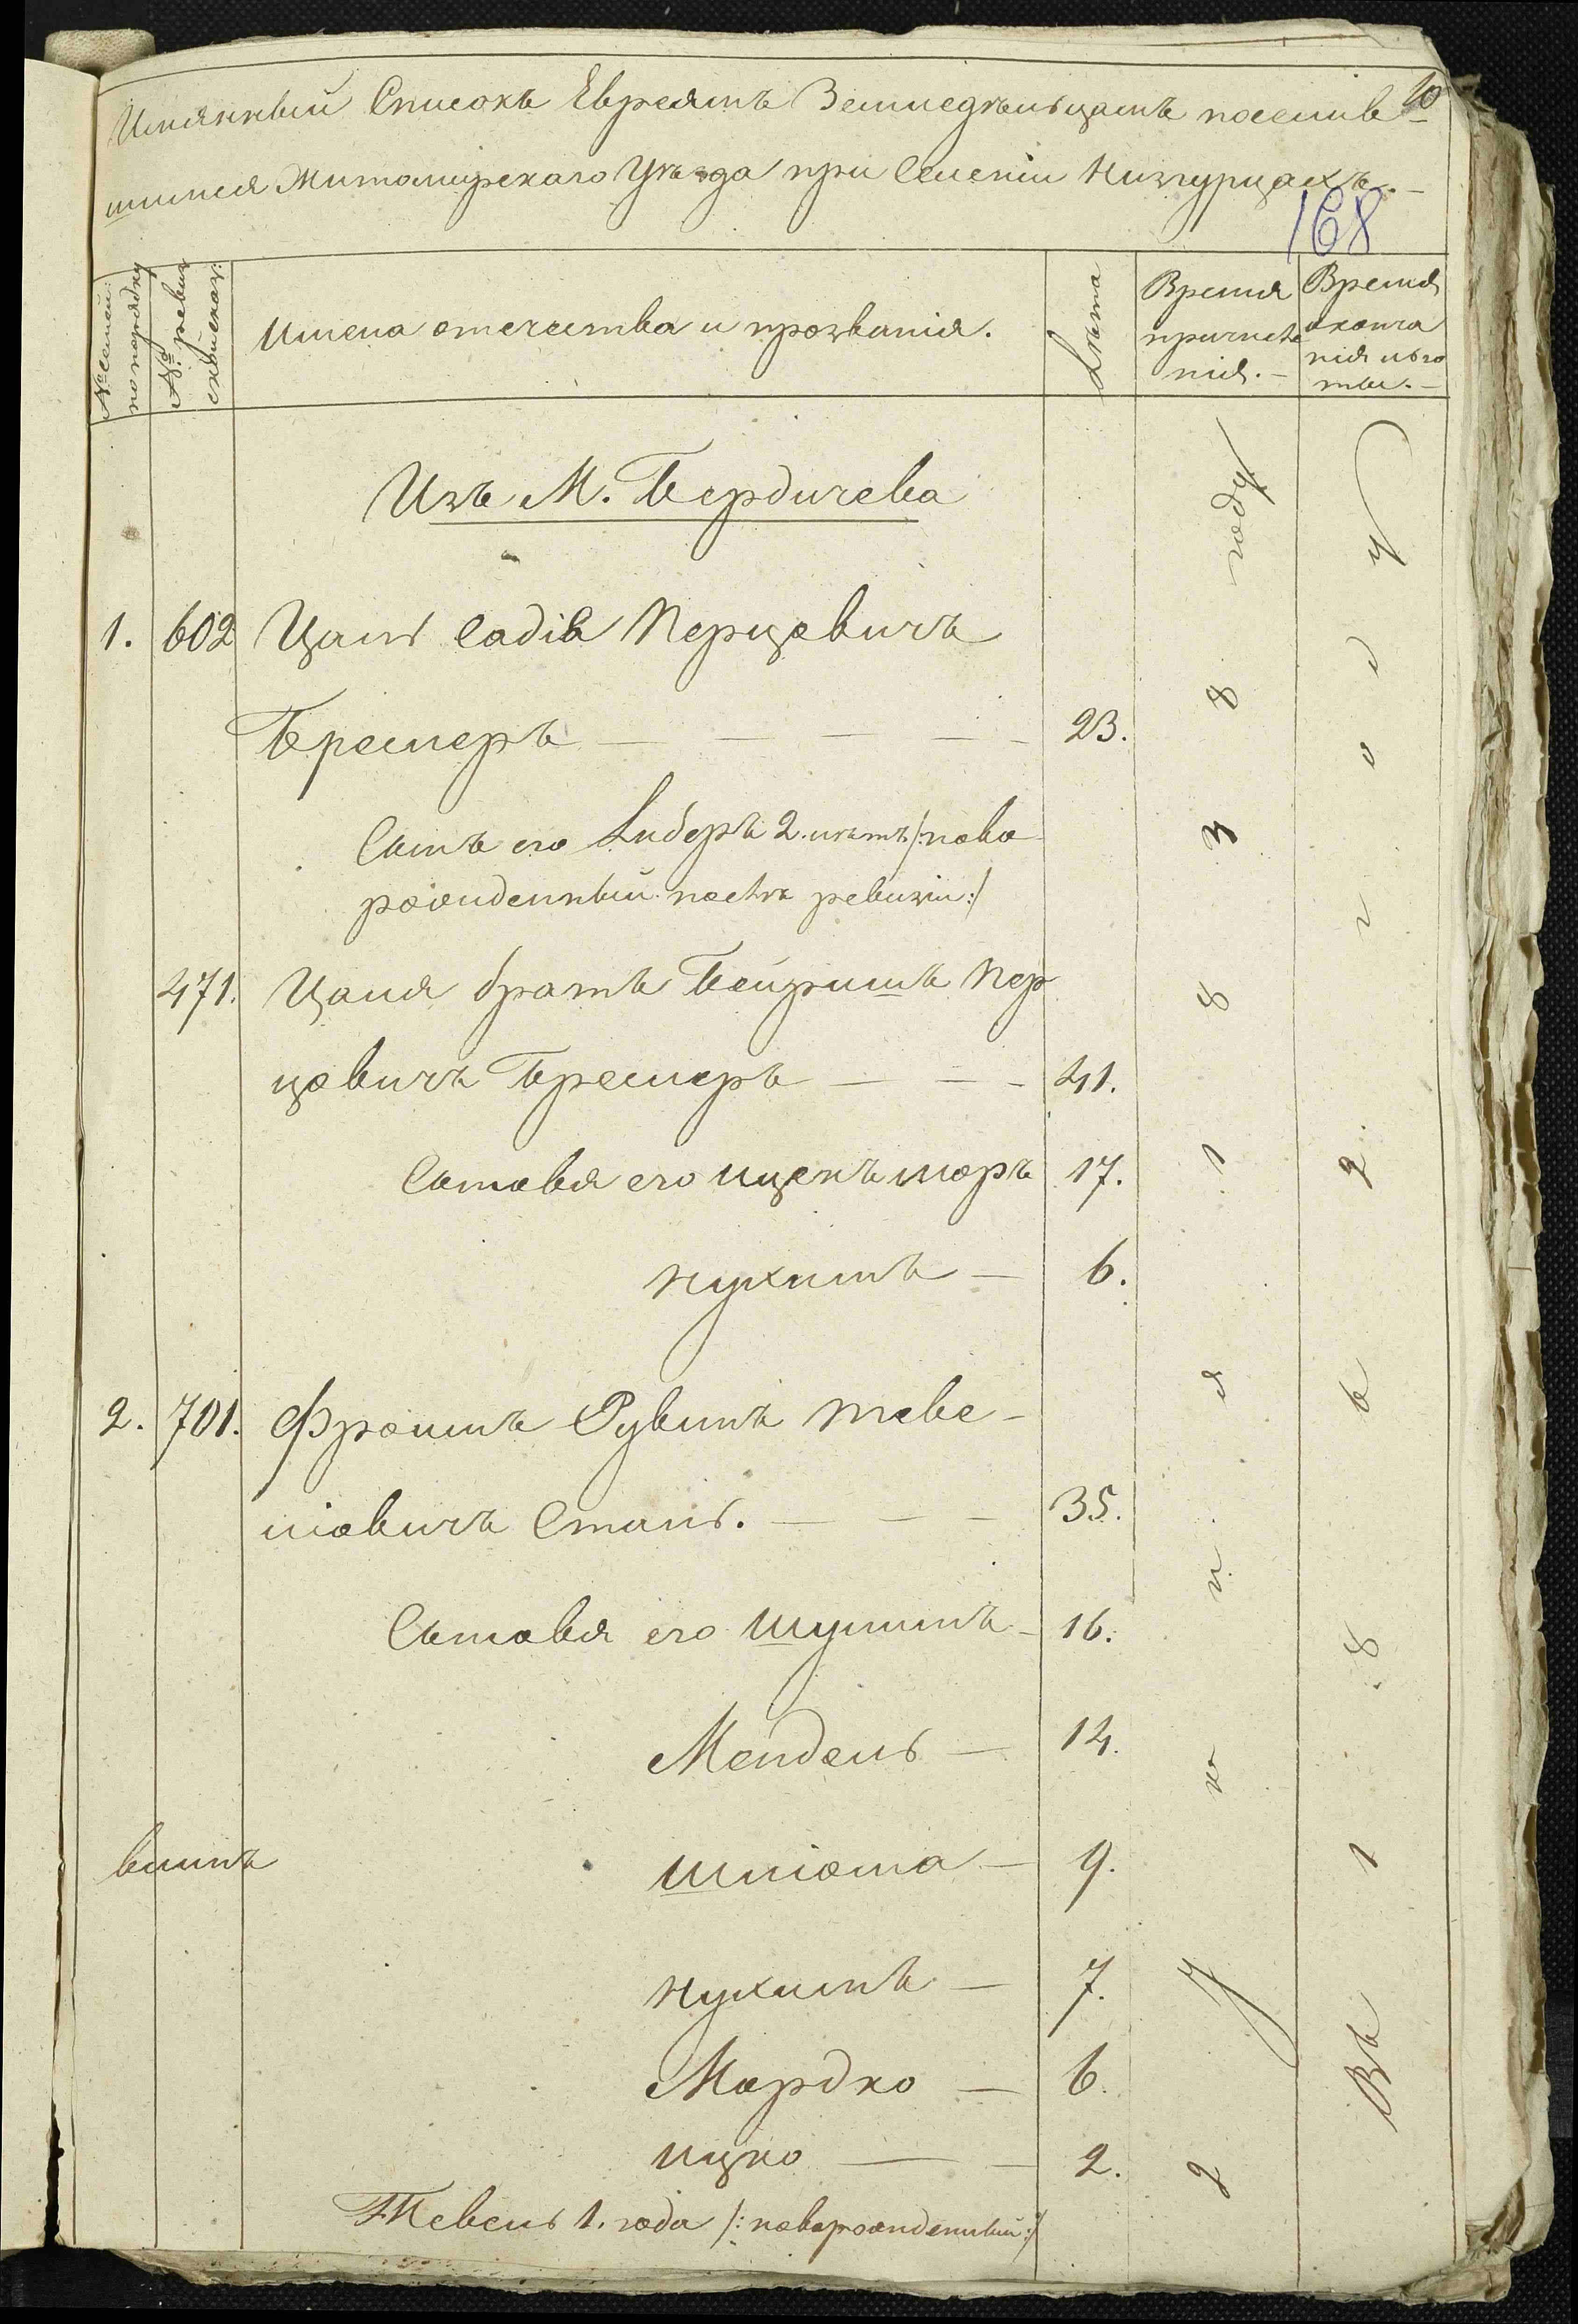 10
Имянный Списокъ Евреямъ Земледѣльцамъ поселив
шимся Житомирскаго Уѣзда при Селеніи Низгурцахъ. —
168
№ семей: по порядку
№ ревиз: ской сказ:
Имена отечества и прозванія.
Лѣта
Время причисленія. —
Время окончанія льготы. —
Изъ М. Бердичева
1. 602 Цаль Садіе Перцовичъ
Бреслеръ — — — — 23.
Сынъ его Либеръ 2. лѣтъ /: ново
рожденный послѣ ревизіи :/
471. Цаля братъ Бейришъ Пер
цовичъ Бреслеръ — — — 41.
Сыновья его Ицекъ Меръ 17.
Нухимъ — 6.
2. 701. Фроимъ Рувинъ Теве-
ліовичъ Сталь. — — — 35.
Сыновья его Шулимъ — 16.
Мендель — 14.
Шліома — 9.
Нухимъ — 7.
Мордко — 6.
Ицко — — 2.
Тевель 1. года /: новорожденный :/
7 Іюля 1838 году
Въ 18 году